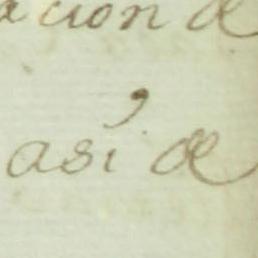 acion de
así de